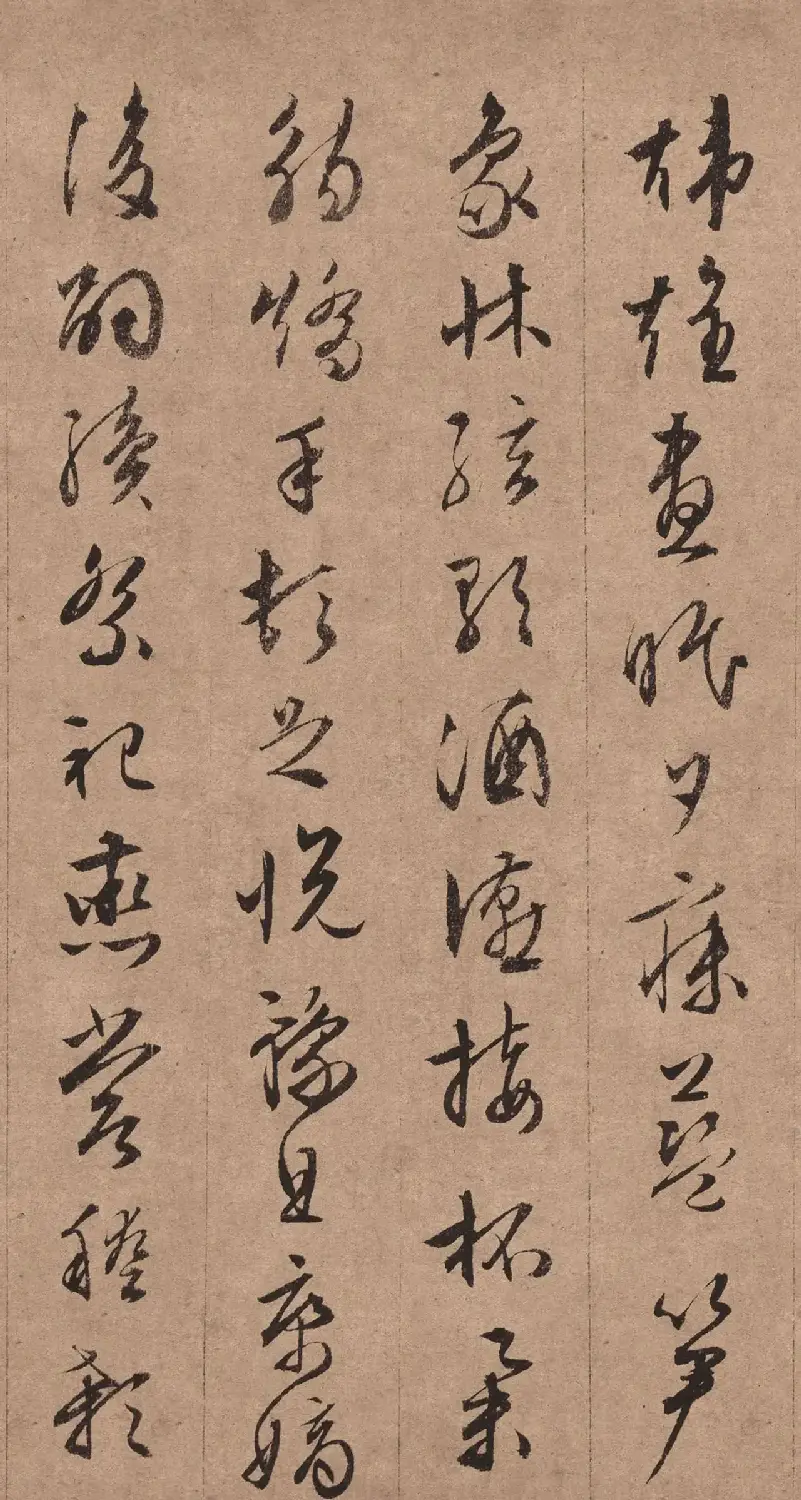 煒煌晝眠夕寐藍笋
象牀絃歌酒讌接杯舉
觴矯手頓足悅豫且康嫡
後嗣續祭祀蒸嘗稽顙